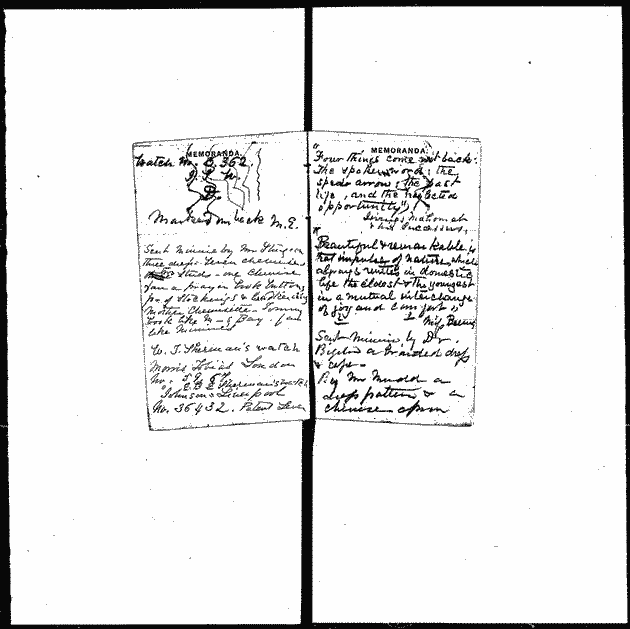 MEMORANDA.
Watch No. B. 362
Marked on back M. E.
Sent Minnie by Mr Stinson
three dress. Seven chemises
Studs - one chemise
fan a pray on book buttons
pr of stockings &
Mother Chemisette. Tommy
book like M - s Bay. fan
like Minnies
W. T. Sherman's watch
Morris Tobias London
No.
E. B. E. Sherman's watch
Johnson Liverpool
No. 36432. Patent Lever
MEMORANDA.
"Four things come not back:
The spoken word; the
sped arrow; the past
life, and the neglected
opportunity";
Irvings Mahomet
& his Successors.
"Beautiful & remarkable is
that impulse of nature which
always unites in domestic
life the eldest & the youngest
in a mutual interchange
of joy and comfort"
Miss
Sent Minnie by Dr.
a braided dress
& cape -
By Mr Mudd a
dress pattern & a
chinese apron